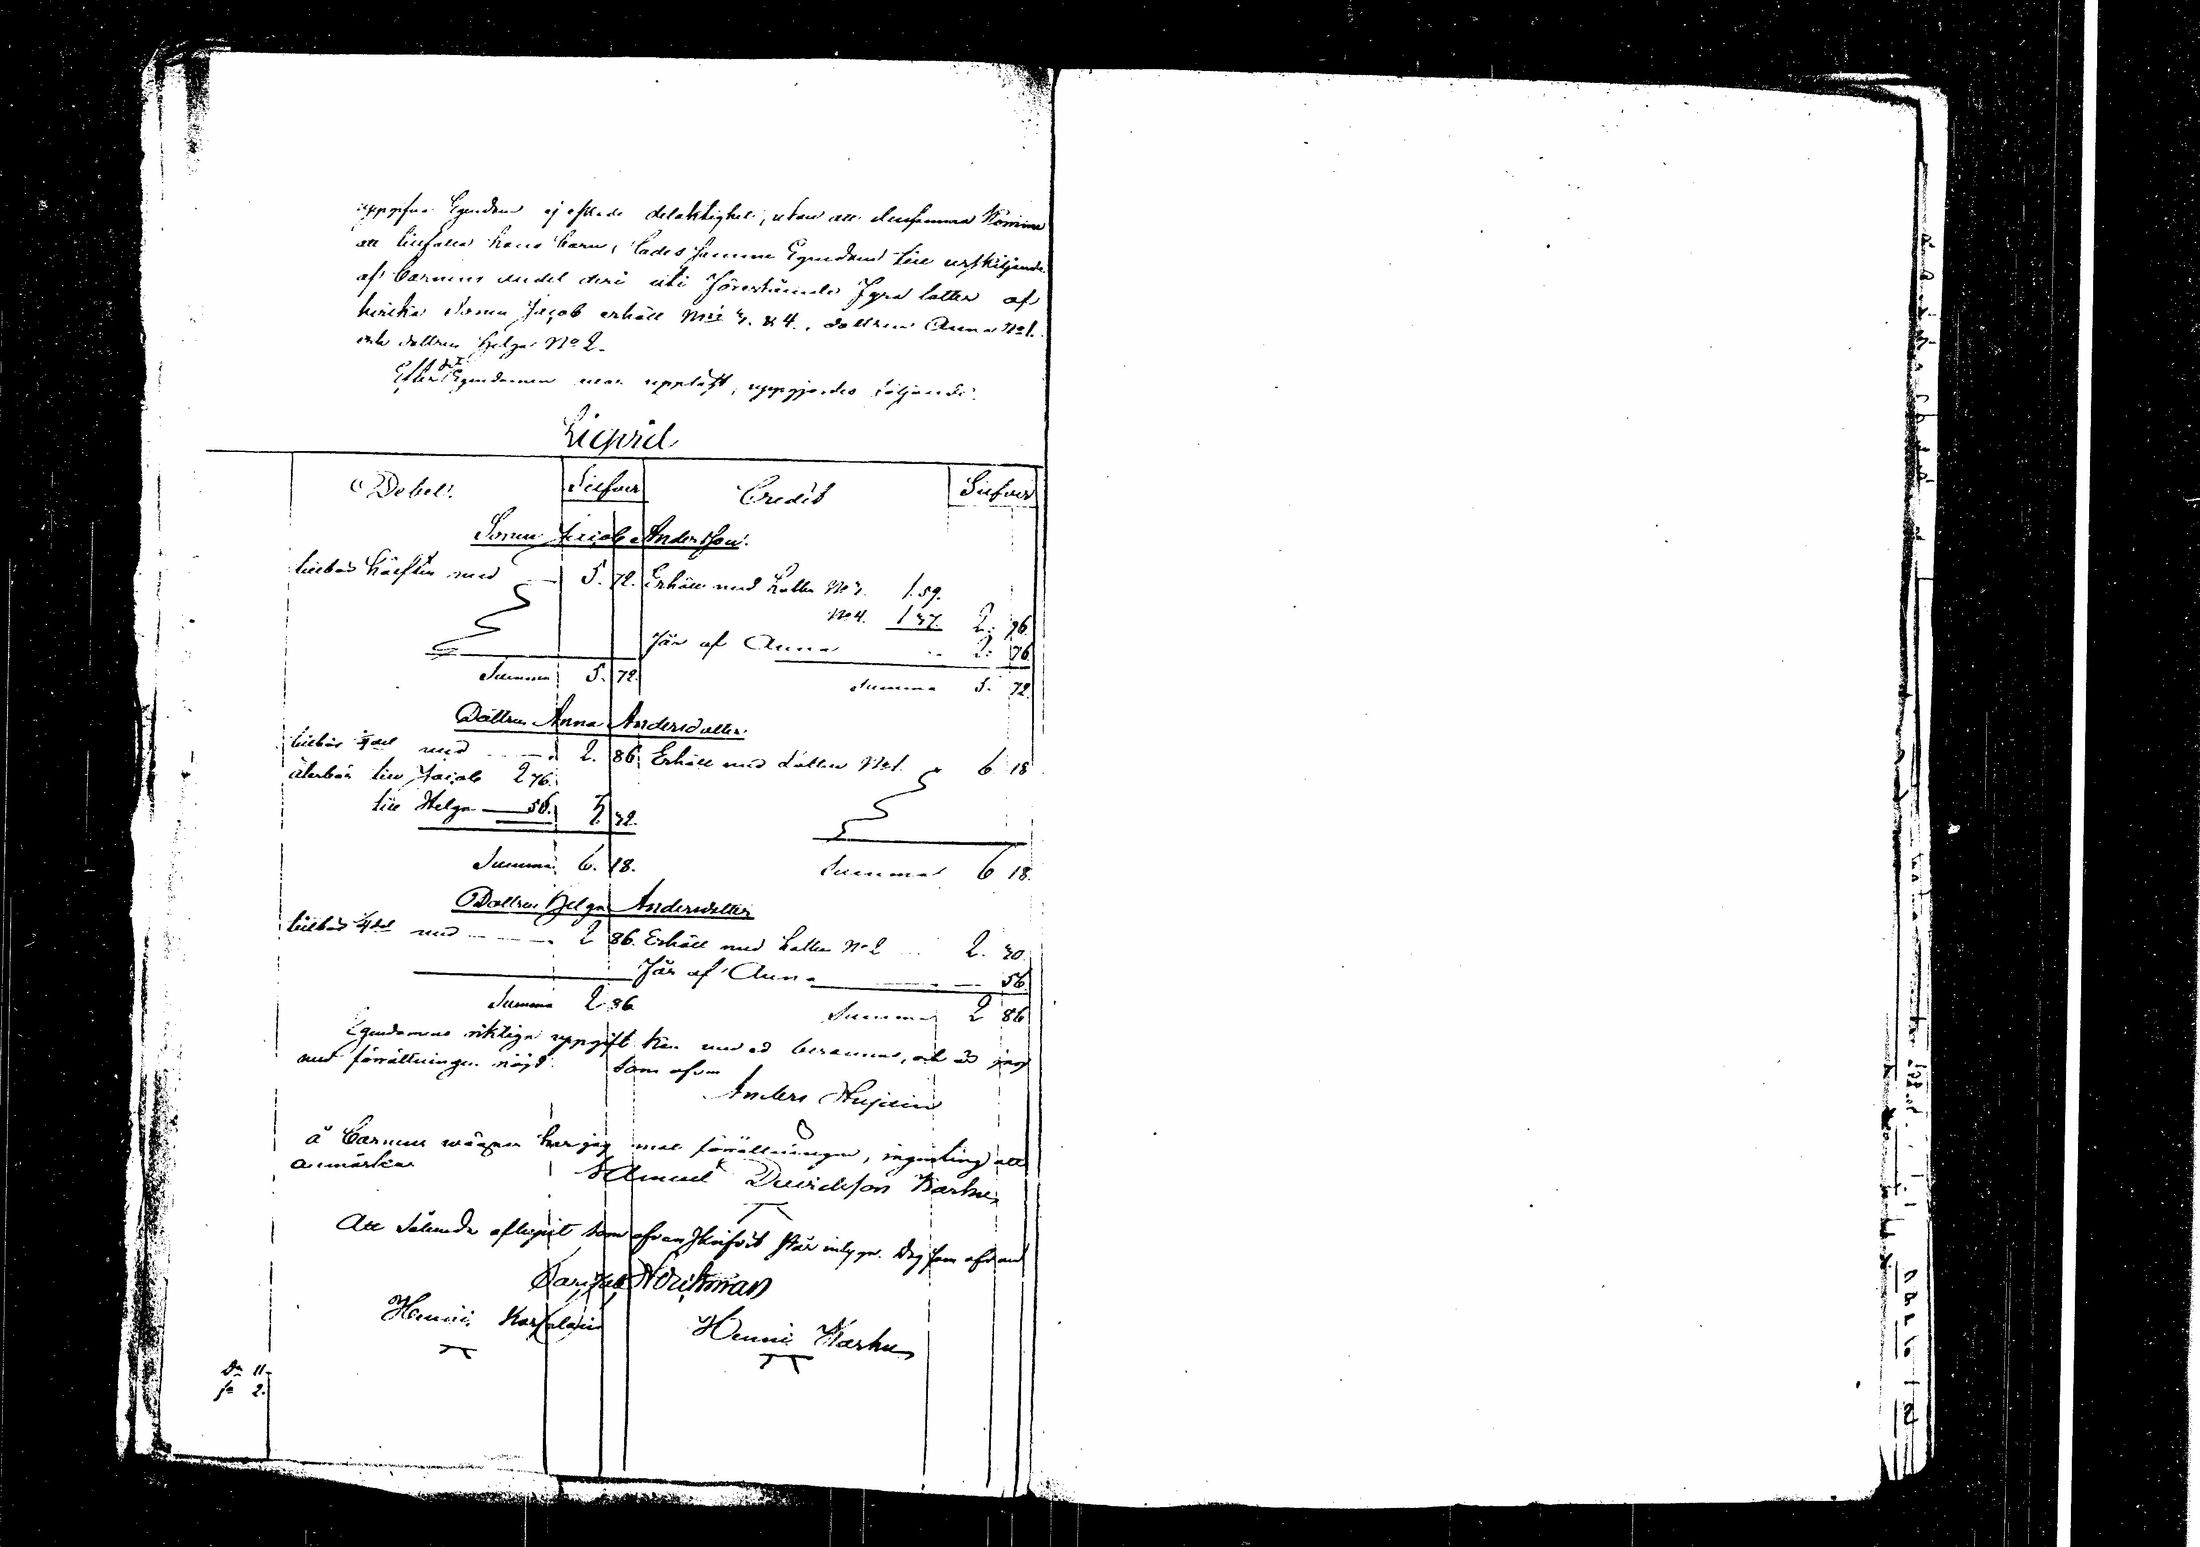 uppgifna Egendom ej efkade delaktighet, utan att densamma komme
att tillfalla hans barn, lades samma Egendom till urskiljande
af barnens andel deri uti förestående fyra lotter af
hvilka Sonen Jacob erhöll Nris 3. & 4., dottren Anna No 1.
och dottren Helga No 2.
Efter det Egendomen var uppläst, uppgjordes följande:
Liqvid
Debet. Silfver Credit Silfver
Sonen Jacob Andersson.
tillkom hälften med 5. 72. Erhöll med Lotten No 3. 1.59.
No 4. 1 37. 2. 96.
Får af Anna 2. 76
Summa 5. 72. Summa 5. 72.
Dottren Anna Andersdotter.
tillkom 1/4 del med 2. 86 Erhöll med Lotten No 1. 6 18
återbär till Jacob 2 76.
till Helga 56. 3 32.
Summa 6. 18. Summa 6 18.
Dottren Helga Andersdotter
tillkom 1/4 del med 2 86. Erhöll med Lotten No 2 2. 30.
Får af Anna 56.
Summa 2 86 Summa 2 86
Egendomens riktiga uppgift kan med ed besannas, och är jag
med förrättningen nöjd. Som ofvan
Anders
å Barnens vägnar har jag mot förrättningen, ingenting att
anmärka
Samuel Davidsson Karhu
Att sålunda aftegnit som ofvanskrifvit står intygar. Dag som ofvan
Henric Karjalain Henric Karhu
11.
2.